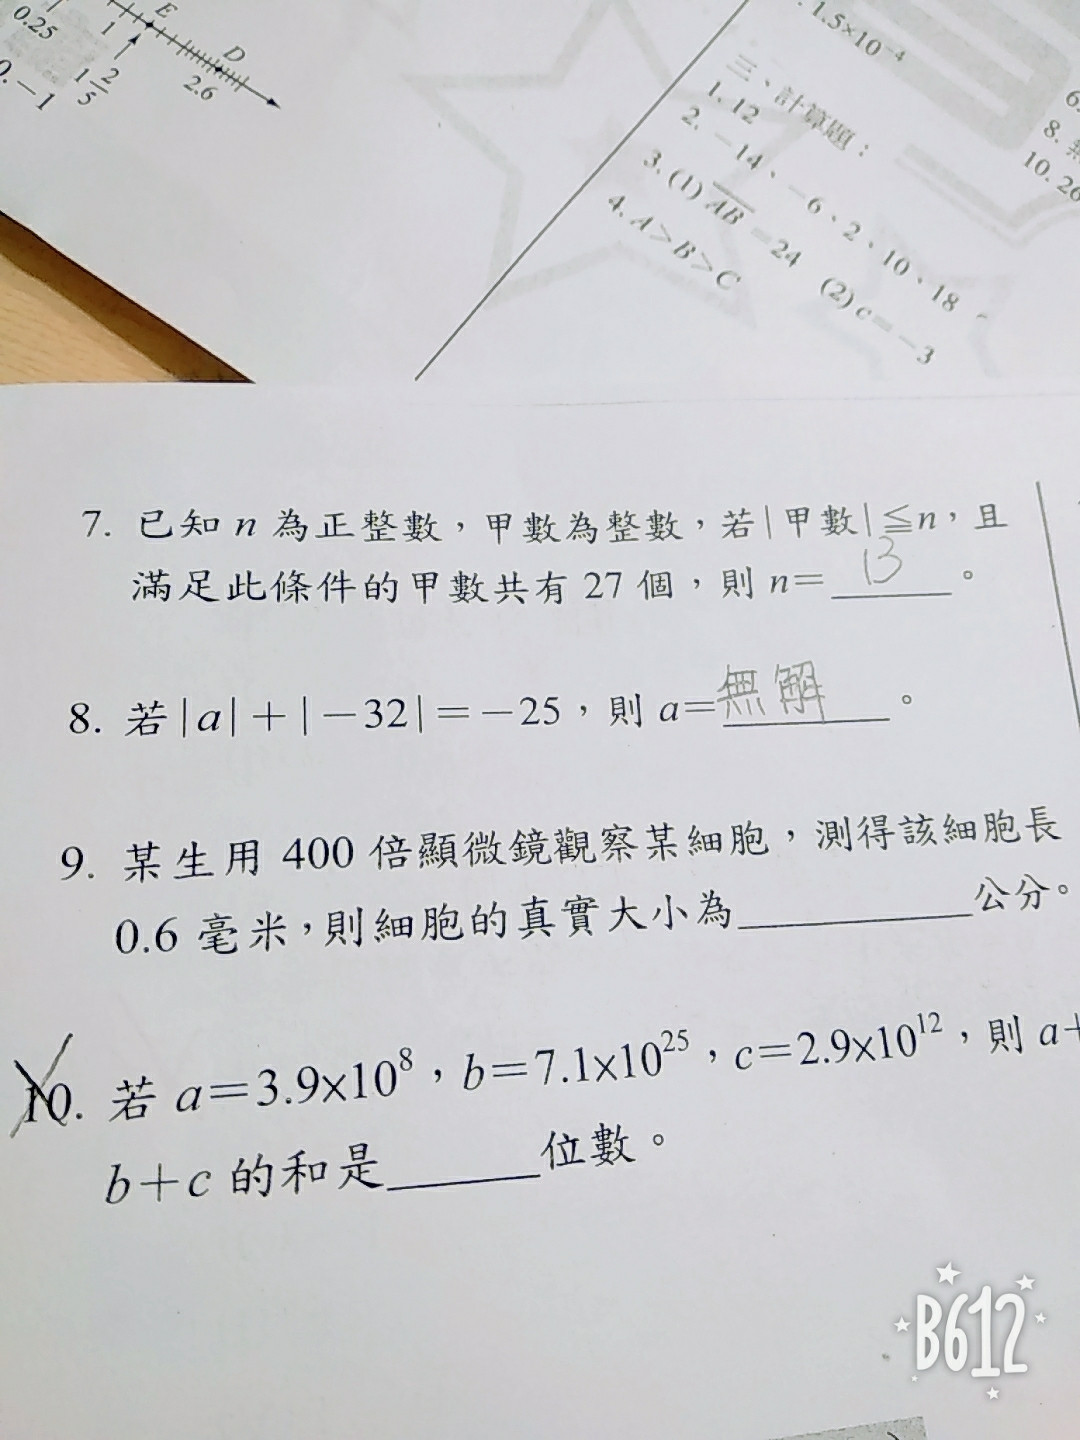 0.25
E
1
1 2/5
D
2.6
0. -1
1.5×10⁻⁴
三、計算題：
1. 12
2. -14、-6、2、10、18
3. (1) AB=24 (2) c=-3
4. A>B>C
6.
8. 無
10. 26
7. 已知 n 為正整數，甲數為整數，若|甲數|≦n，且
滿足此條件的甲數共有 27 個，則 n= 13 。
8. 若|a|+|-32|=-25，則 a=無解 。
9. 某生用 400 倍顯微鏡觀察某細胞，測得該細胞長
0.6 毫米，則細胞的真實大小為______公分。
10. 若 a=3.9×10⁸，b=7.1×10²⁵，c=2.9×10¹²，則 a+
b+c 的和是______位數。
B612